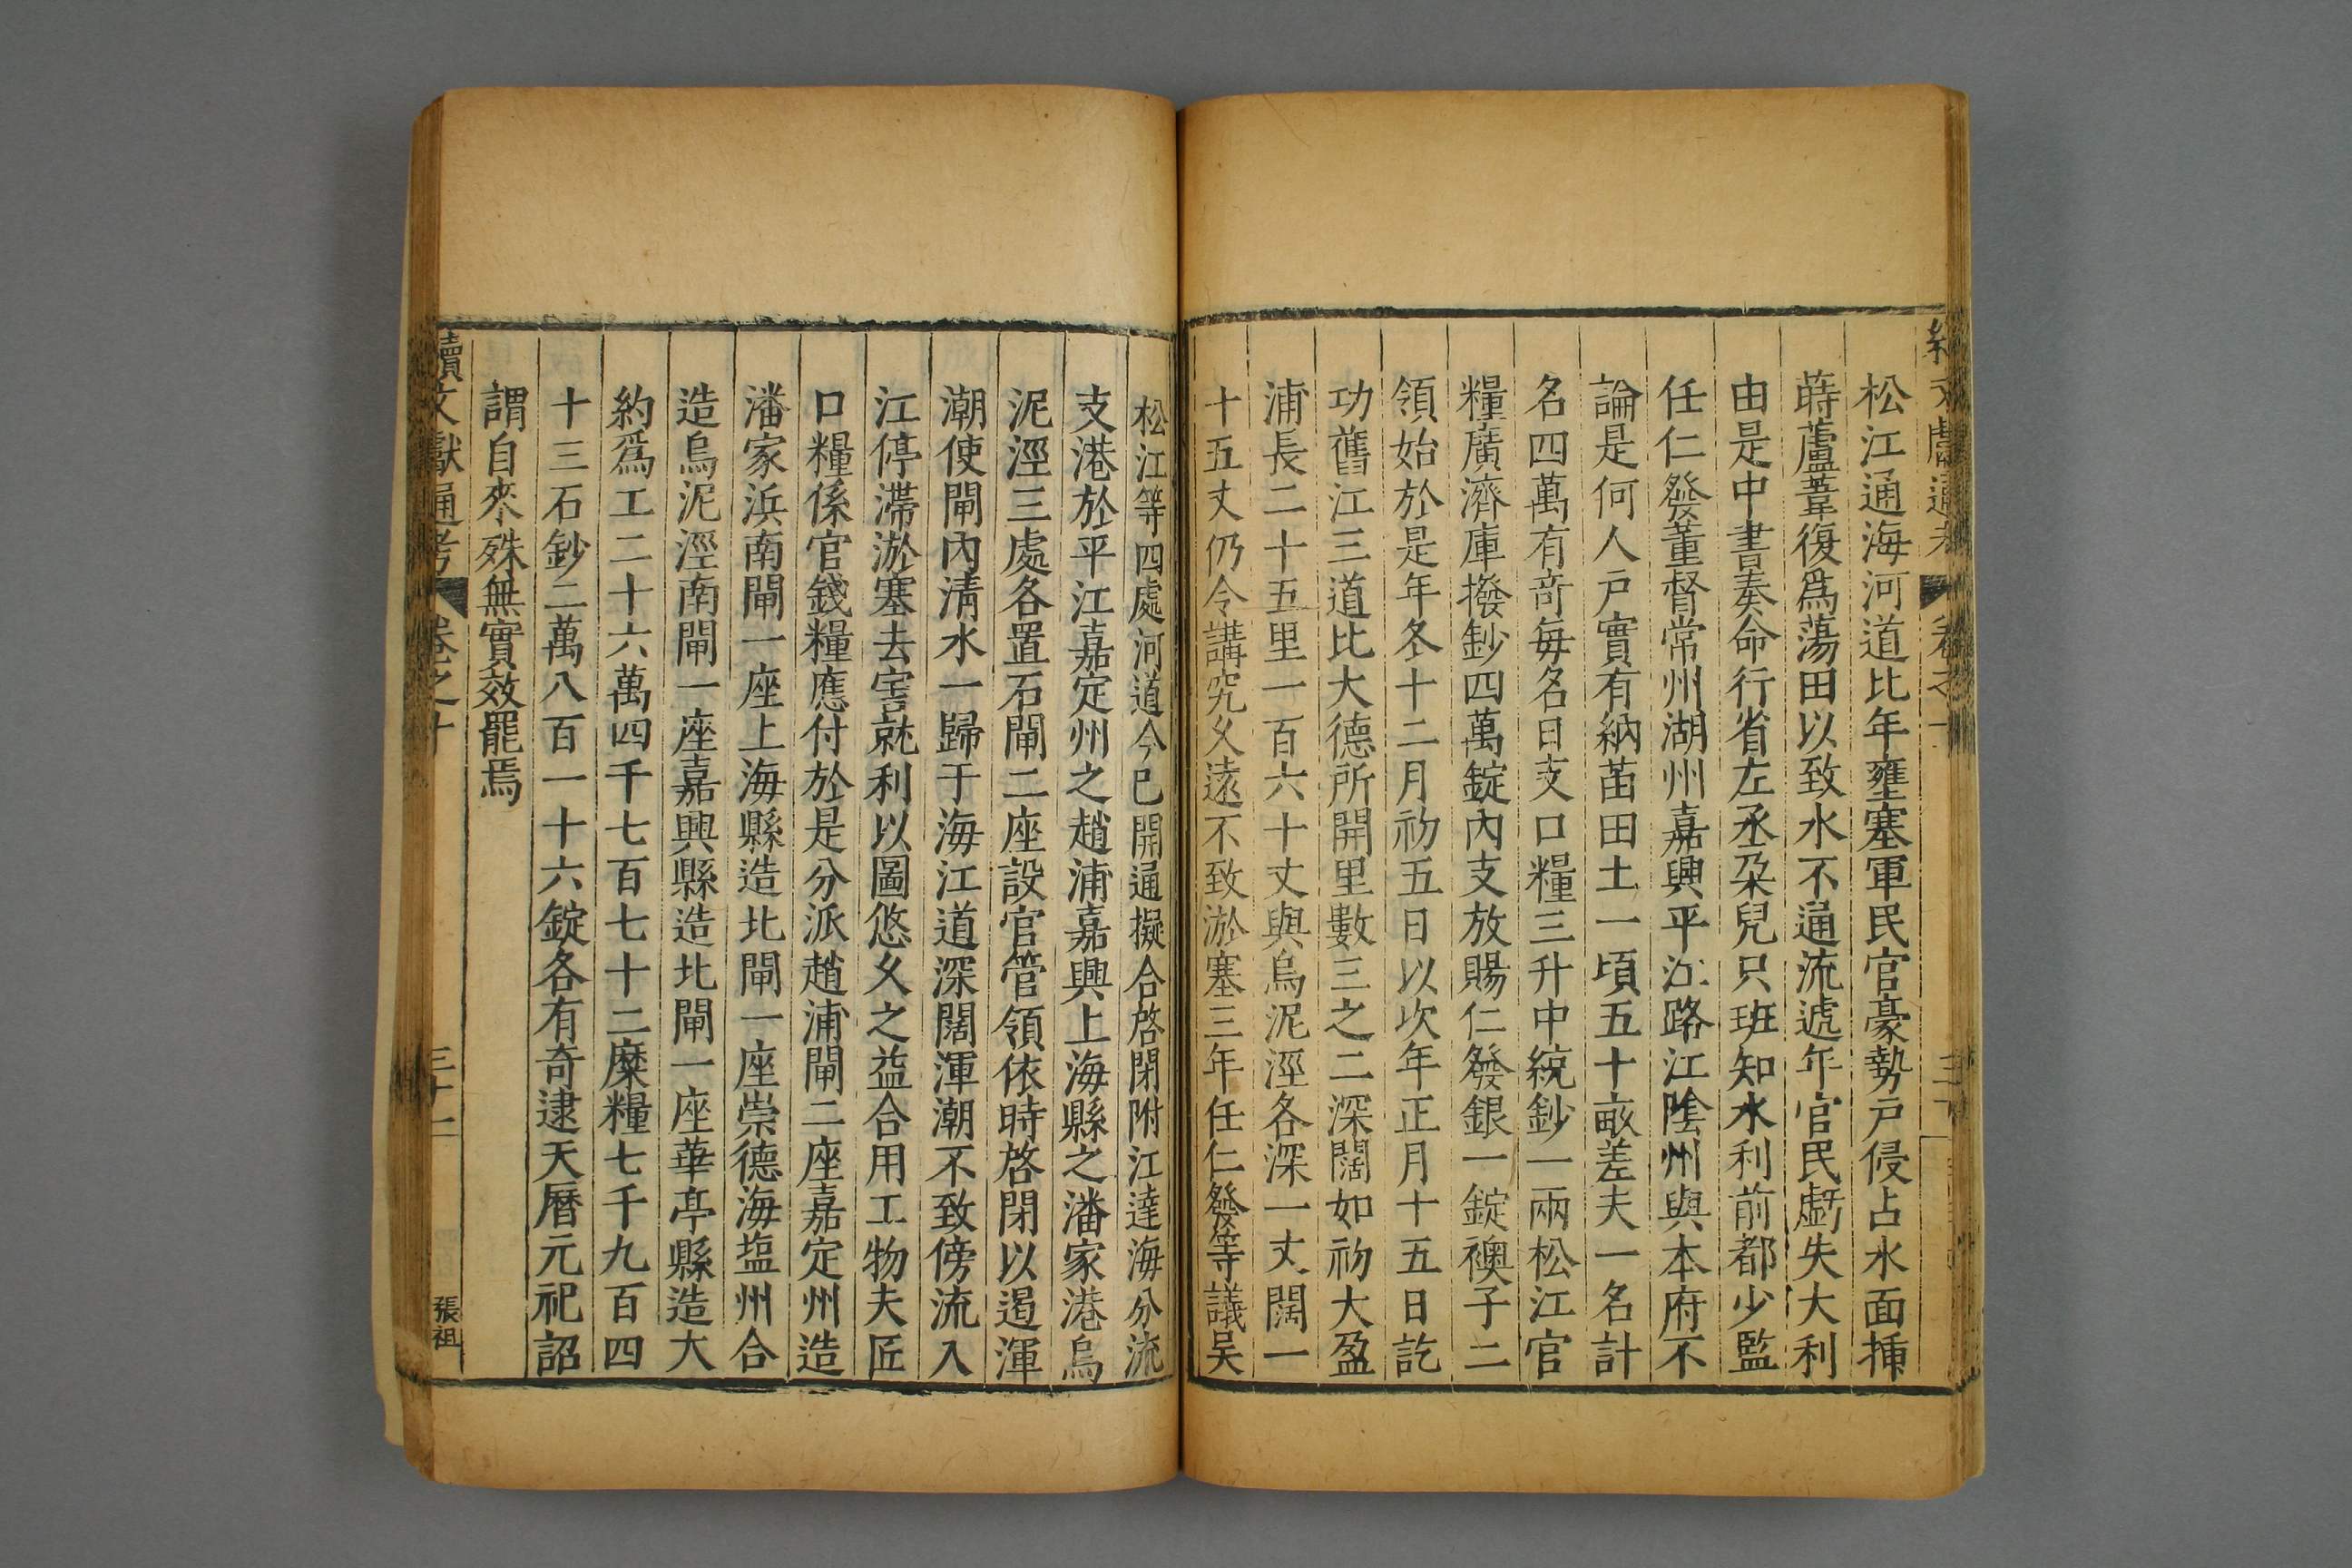 松江通海河道比年壅塞軍民官豪勢戸侵占水面挿
蒔蘆葦復爲蕩田以致水不通流遞年官民虧失大利
由是中書奏命行省左丞朶兒只班知水利前都少監
任仁發董督常州湖州嘉興平江路江隂州與本府不
論是何人戸實有納苗田土一頃五十畝差夫一名計
名四萬有竒毎名日支口糧三升中統鈔一兩松江官
糧廣濟庫撥鈔四萬錠內支放賜仁發銀一錠襖子二
領始於是年冬十二月初五日以次年正月十五日訖
功舊江三道比大德所開里數三之二深闊如初大盈
浦長二十五里一百六十丈與烏泥涇各深一丈闊一
十五丈仍令講究乆遠不致淤塞三年任仁發等議吴
松江等四處河道今已開通擬合啓閉附江達海分流
支港於平江嘉定州之趙浦嘉興上海縣之潘家港烏
泥涇三處各置石閘二座設官管領依時啓閉以遏渾
潮使閘內淸水一歸于海江道深闊渾潮不致傍流入
江停滯淤塞去害就利以圖悠乆之益合用工物夫匠
口糧係官錢糧應付於是分派趙浦閘二座嘉定州造
潘家浜南閘一座上海縣造北閘一座崇德海塩州合
造烏泥涇南閘一座嘉興縣造北閘一座華亭縣造大
約爲工二十六萬四千七百七十二糜糧七千九百四
十三石鈔二萬八百一十六錠各有奇逮天曆元祀詔
謂自來殊無實效罷焉
續文獻通考 卷之十 三十二 張祖